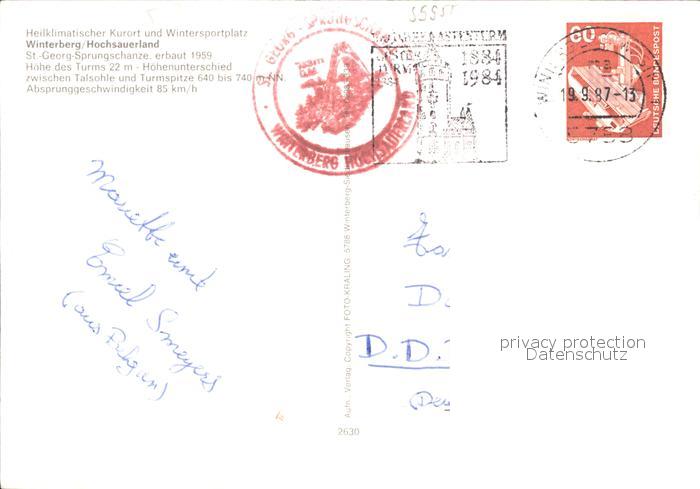 Heilklimatischer Kurort und Wintersportplatz
Winterberg/Hochsauerland
St.-Georg-Sprungschanze, erbaut 1959
Höhe des Turms 22 m - Höhenunterschied
zwischen Talsohle und Turmspitze 640 bis 740 NN.
Absprunggeschwindigkeit 85 km/h
ST. GEORG-SPRUNGSCHANZE
WINTERBERG HOCHSAUERLAND
ASTENTURM
1884
1984
19.9.87-13
60
DEUTSCHE BUNDESPOST
Mariette und
Emiel Smeyers
(aus Belgien)
D.D.
privacy protection
Datenschutz
Aufn. Verlag Copyright FOTO-KRALING, 5788 Winterberg
2630